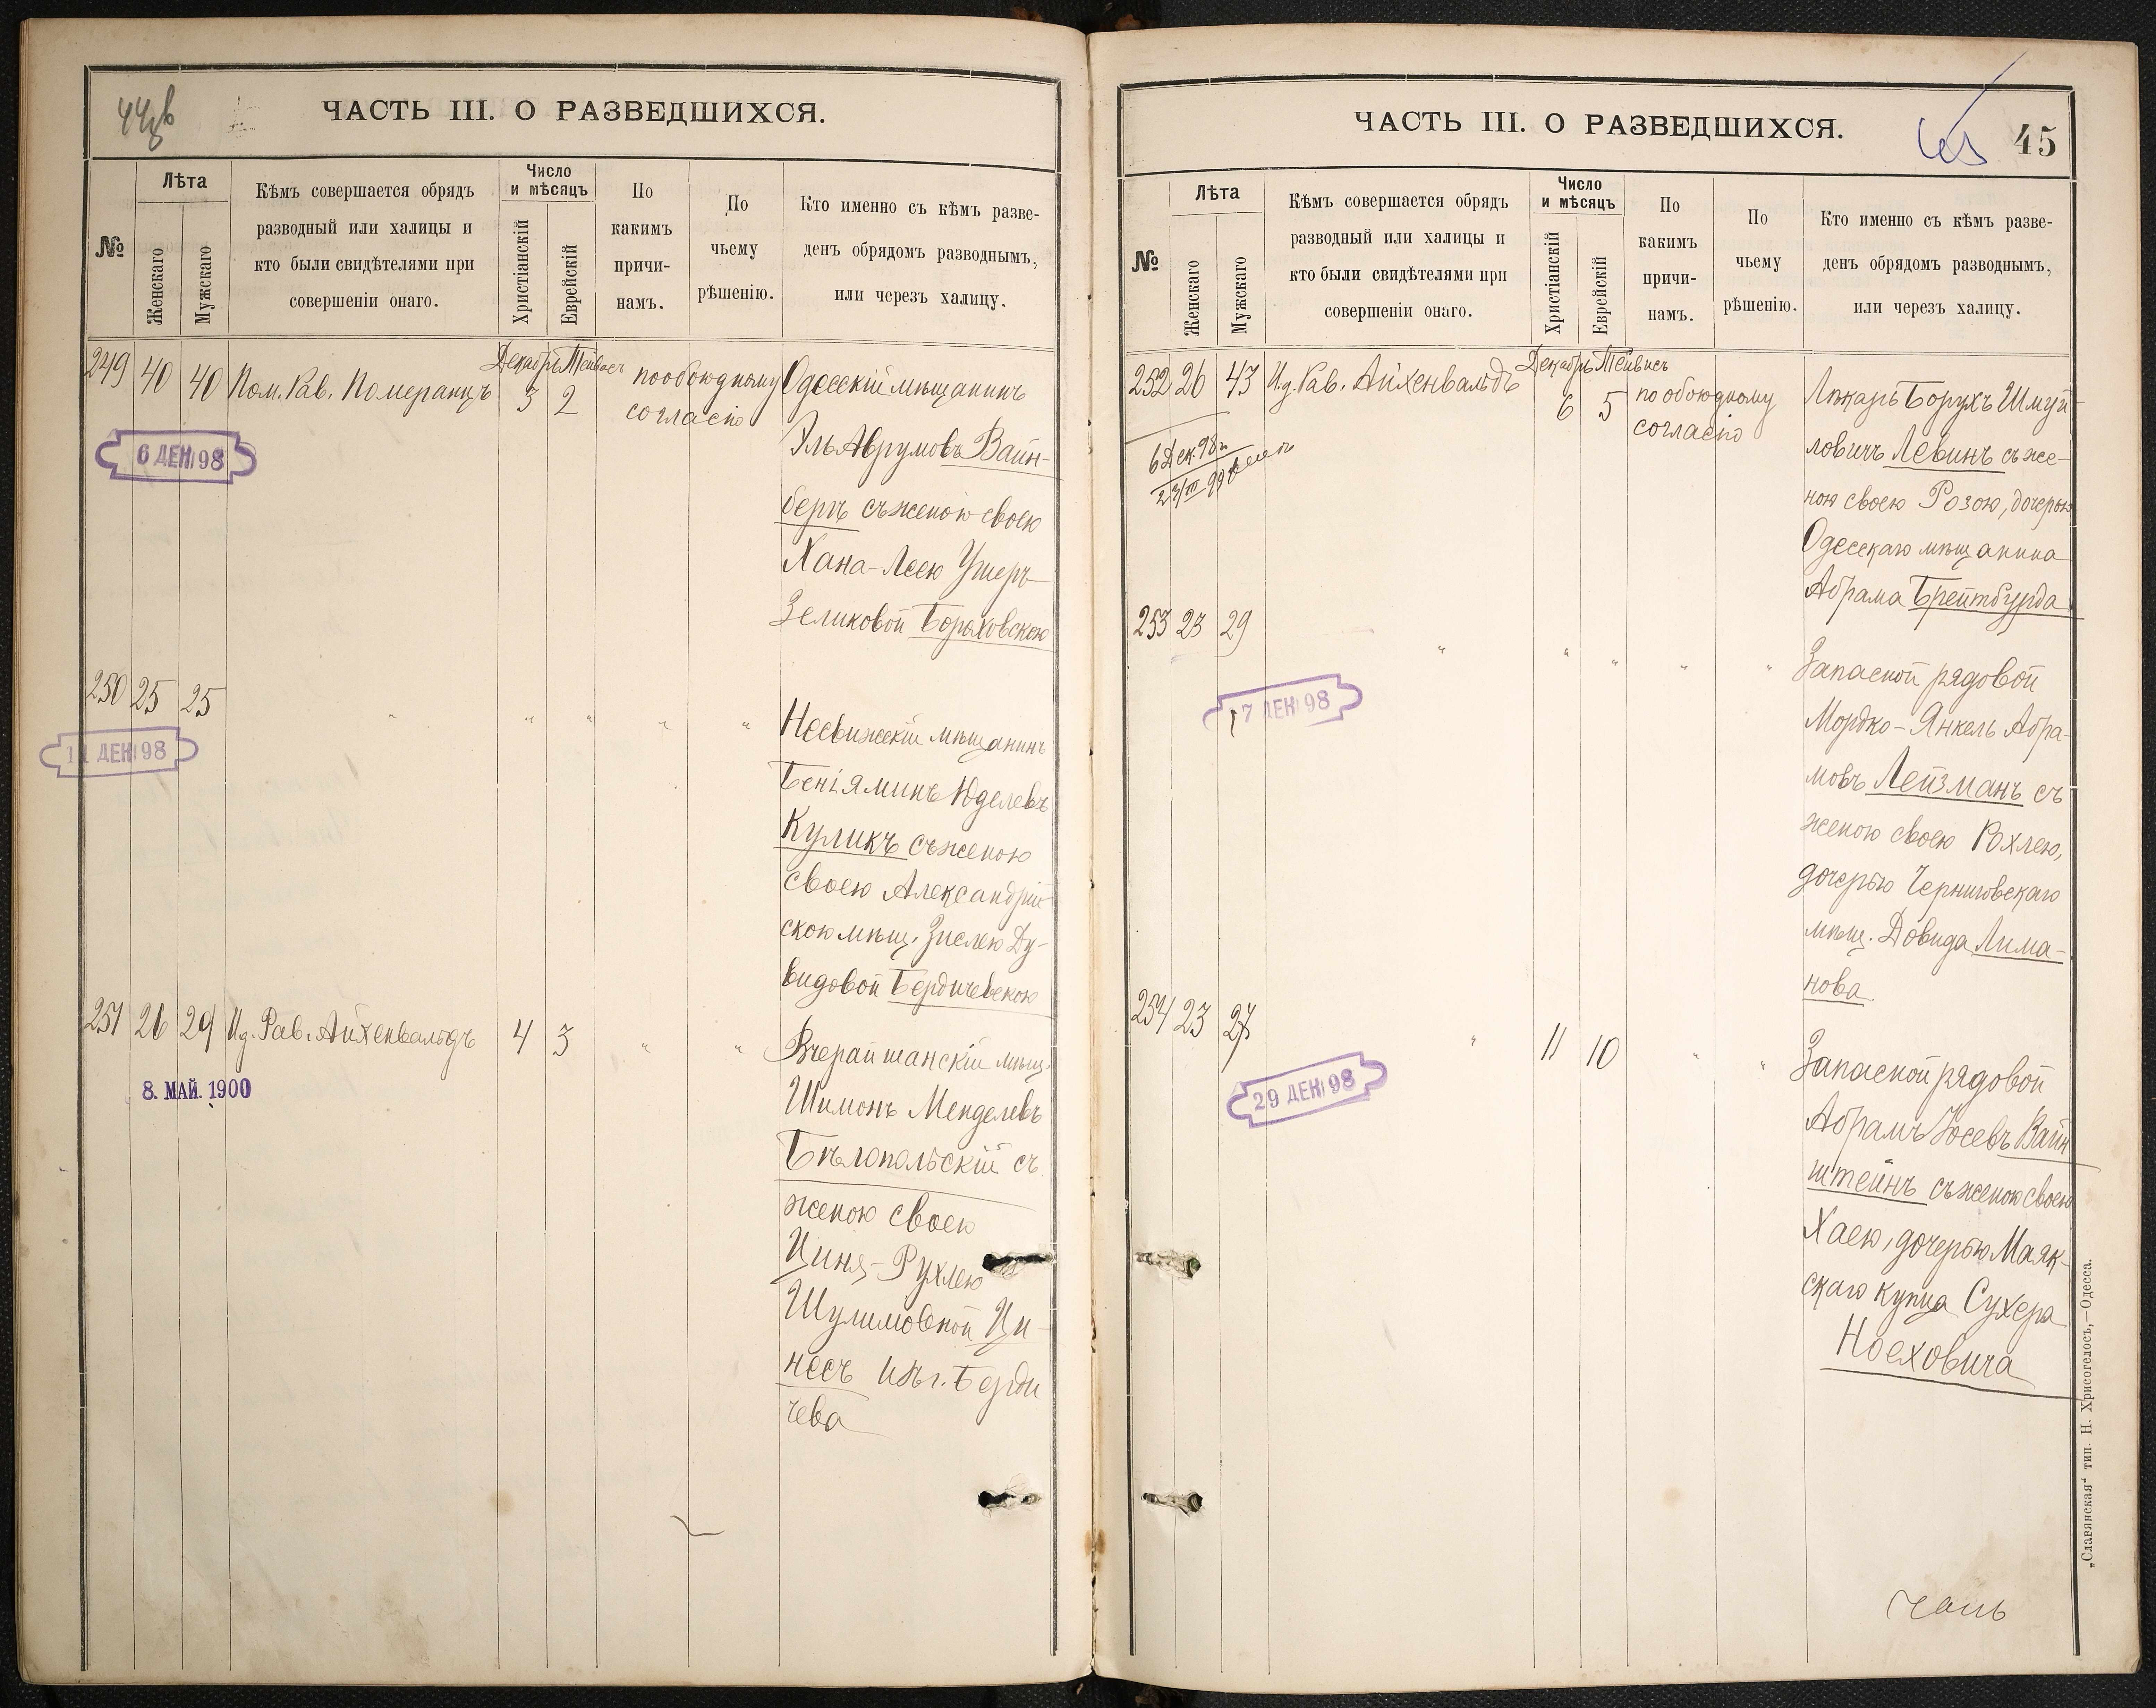 44об
ЧАСТЬ III. О РАЗВЕДШИХСЯ.
№
Лѣта
Женскаго
Мужскаго
Кѣмъ совершается обрядъ
разводный или халицы и
кто были свидѣтелями при
совершеніи онаго.
Число
и мѣсяцъ
Христіанскій
Еврейскій
По
какимъ
причи-
намъ.
По
чьему
рѣшенію.
Кто именно съ кѣмъ разве-
денъ обрядомъ разводнымъ,
или черезъ халицу.
Декабрь Тейвесъ
249 40 40 Пом. Рав. Померанцъ 3 2 по обоюдному Одесскій мѣщанинъ
согласію
Эль Аврумовъ Вайн-
6 ДЕК 98
бергъ съ женою своею
Хана-Леею Ушеръ
Зеликовой Бораховскою
250 25 25 " " " " " Несвижскій мѣщанинъ
11 ДЕК 98
Беніяминъ Юделевъ
Куликъ съ женою
своею Александрій-
скою мѣщ. Зислею Ду-
видовой Бердичевскою
251 26 29 И.д. Рав. Айхенвальдъ 4 3 " " Вчерайшанскій мѣщ.
8. МАЙ. 1900
Шимонъ Менделевъ
Бѣлопольскій съ
женою своею
Циня-Рухлею
Шулимовной Ци-
несъ изъ г. Берди
чева
ЧАСТЬ III. О РАЗВЕДШИХСЯ.
45
45
№
Лѣта
Женскаго
Мужскаго
Кѣмъ совершается обрядъ
разводный или халицы и
кто были свидѣтелями при
совершеніи онаго.
Число
и мѣсяцъ
Христіанскій
Еврейскій
По
какимъ
причи-
намъ.
По
чьему
рѣшенію.
Кто именно съ кѣмъ разве-
денъ обрядомъ разводнымъ,
или черезъ халицу.
Декабрь Тейвесъ
252 26 43 И.д. Рав. Айхенвальдъ 6 5 по обоюдному Лѣкарь Борухъ Шмуй-
согласію
6 Дек. 98 г.
23/III 99
ловичъ Левинъ съ же-
ною своею Розою, дочерью
Одесскаго мѣщанина
Абрама Брейтбурда
253 23 29 " " " " " Запасной рядовой
7 ДЕК 98
Мордко-Янкель Абра-
мовъ Лейзманъ съ
женою своею Рохлею,
дочерью Черниговскаго
мѣщ. Довида Лима-
нова.
254 23 27 " 11 10 " " Запасной рядовой
29 ДЕК 98
Абрамъ Іосевъ Вайн
штейнъ съ женою своею
Хаею, дочерью Маяк-
скаго купца Сухера
Ноеховича
„Славянская“ тип. Н. Хрисогелосъ,—Одесса.